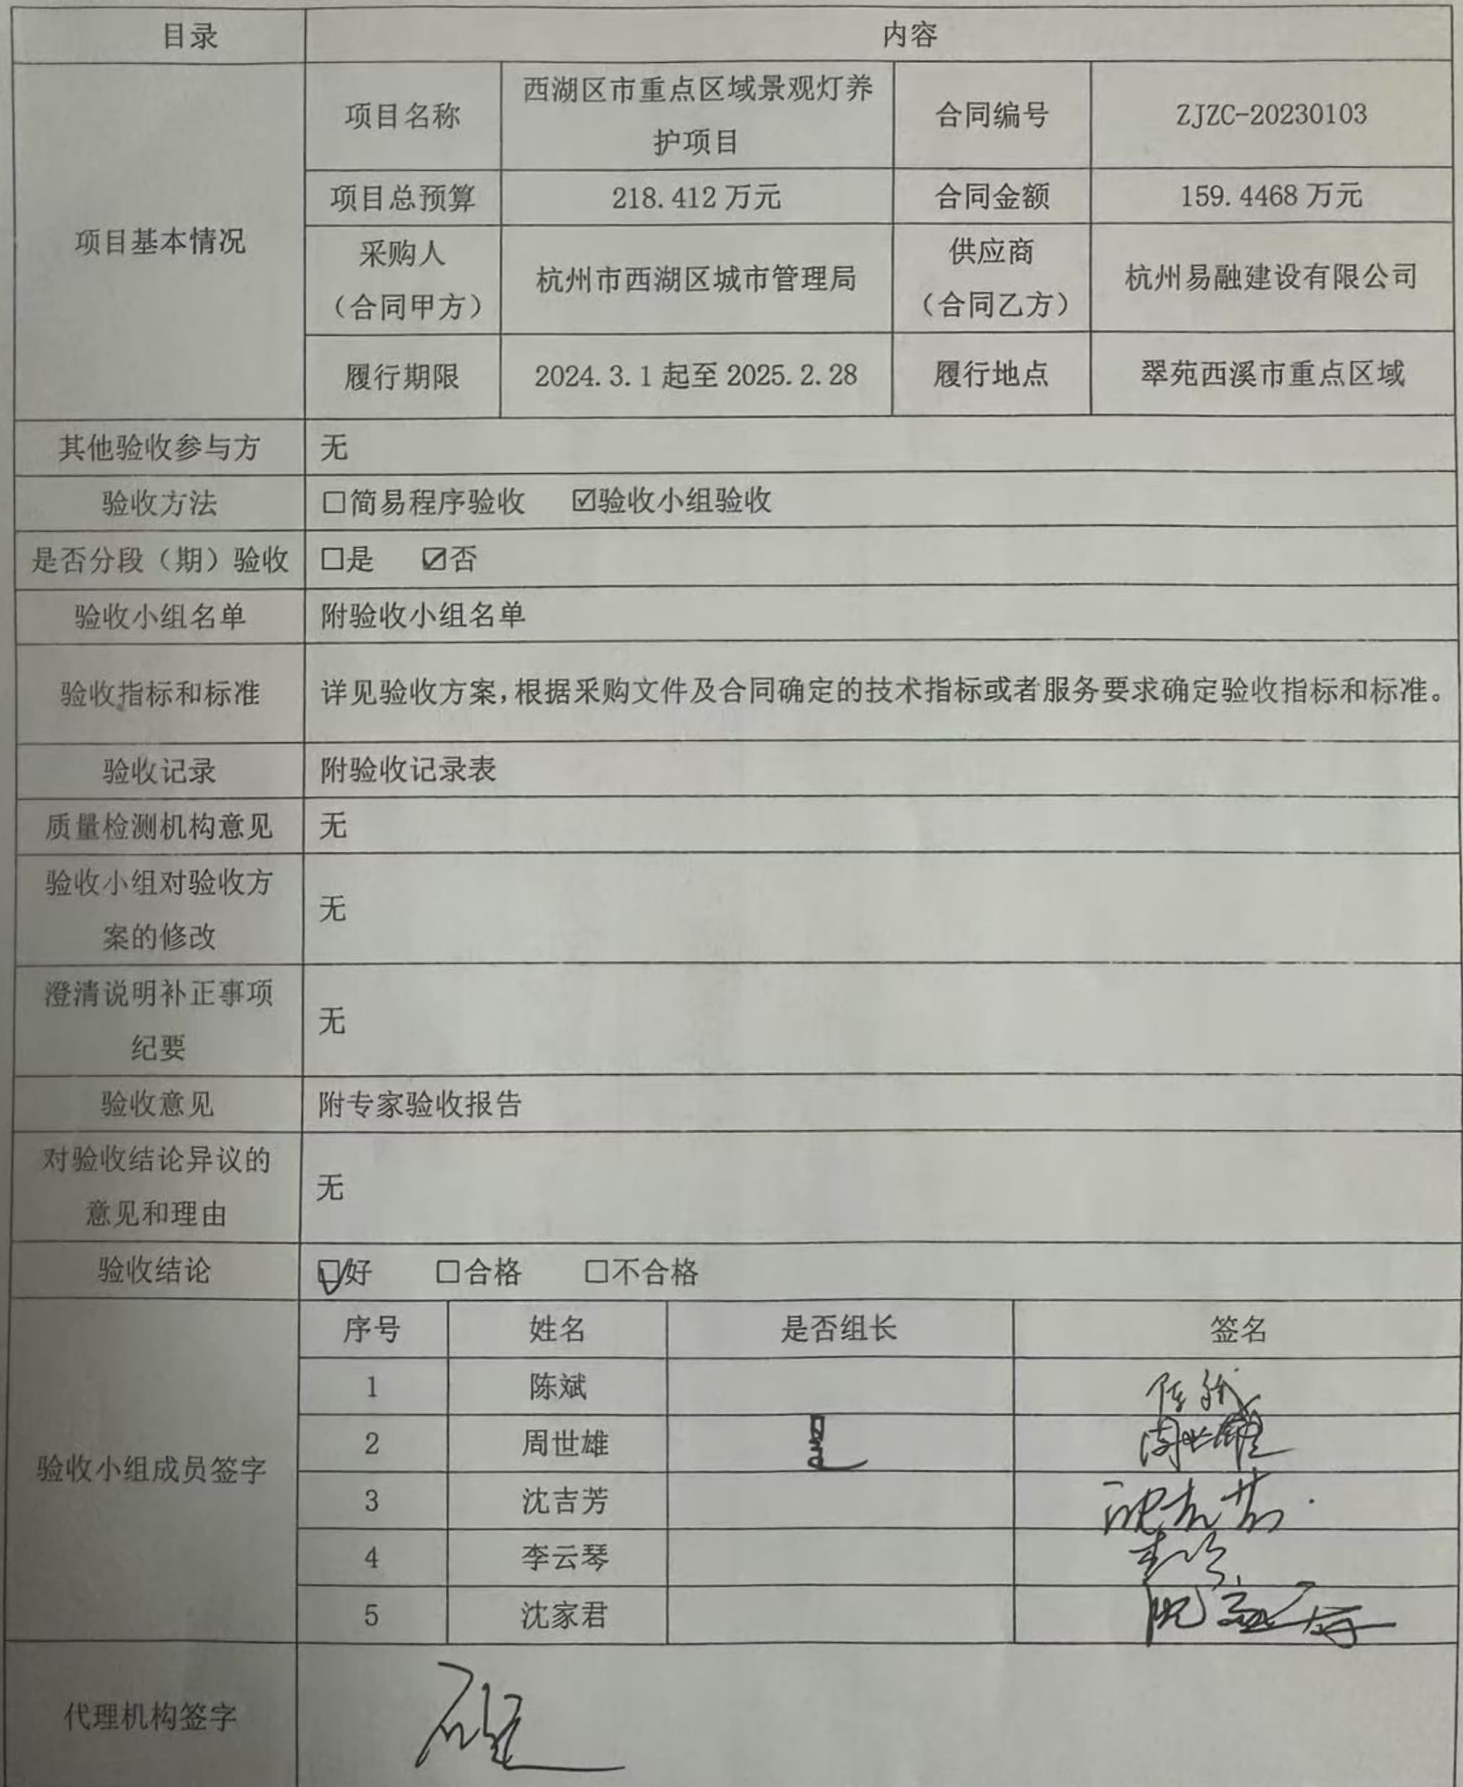 目录 内容
项目基本情况
项目名称 西湖区市重点区域景观灯养
护项目
合同编号 ZJZC-20230103
项目总预算 218.412万元 合同金额 159.4468万元
采购人
（合同甲方）
杭州市西湖区城市管理局
供应商
（合同乙方）
杭州易融建设有限公司
履行期限 2024.3.1起至2025.2.28 履行地点 翠苑西溪市重点区域
其他验收参与方 无
验收方法 □简易程序验收 ☑验收小组验收
是否分段（期）验收 □是 ☑否
验收小组名单 附验收小组名单
验收指标和标准 详见验收方案,根据采购文件及合同确定的技术指标或者服务要求确定验收指标和标准。
验收记录 附验收记录表
质量检测机构意见 无
验收小组对验收方
案的修改
无
澄清说明补正事项
纪要
无
验收意见 附专家验收报告
对验收结论异议的
意见和理由
无
验收结论 ☑好 □合格 □不合格
验收小组成员签字
序号 姓名 是否组长 签名
1 陈斌 陈斌
2 周世雄 是 周世雄
3 沈吉芳 沈吉芳
4 李云琴
5 沈家君 沈家君
代理机构签字